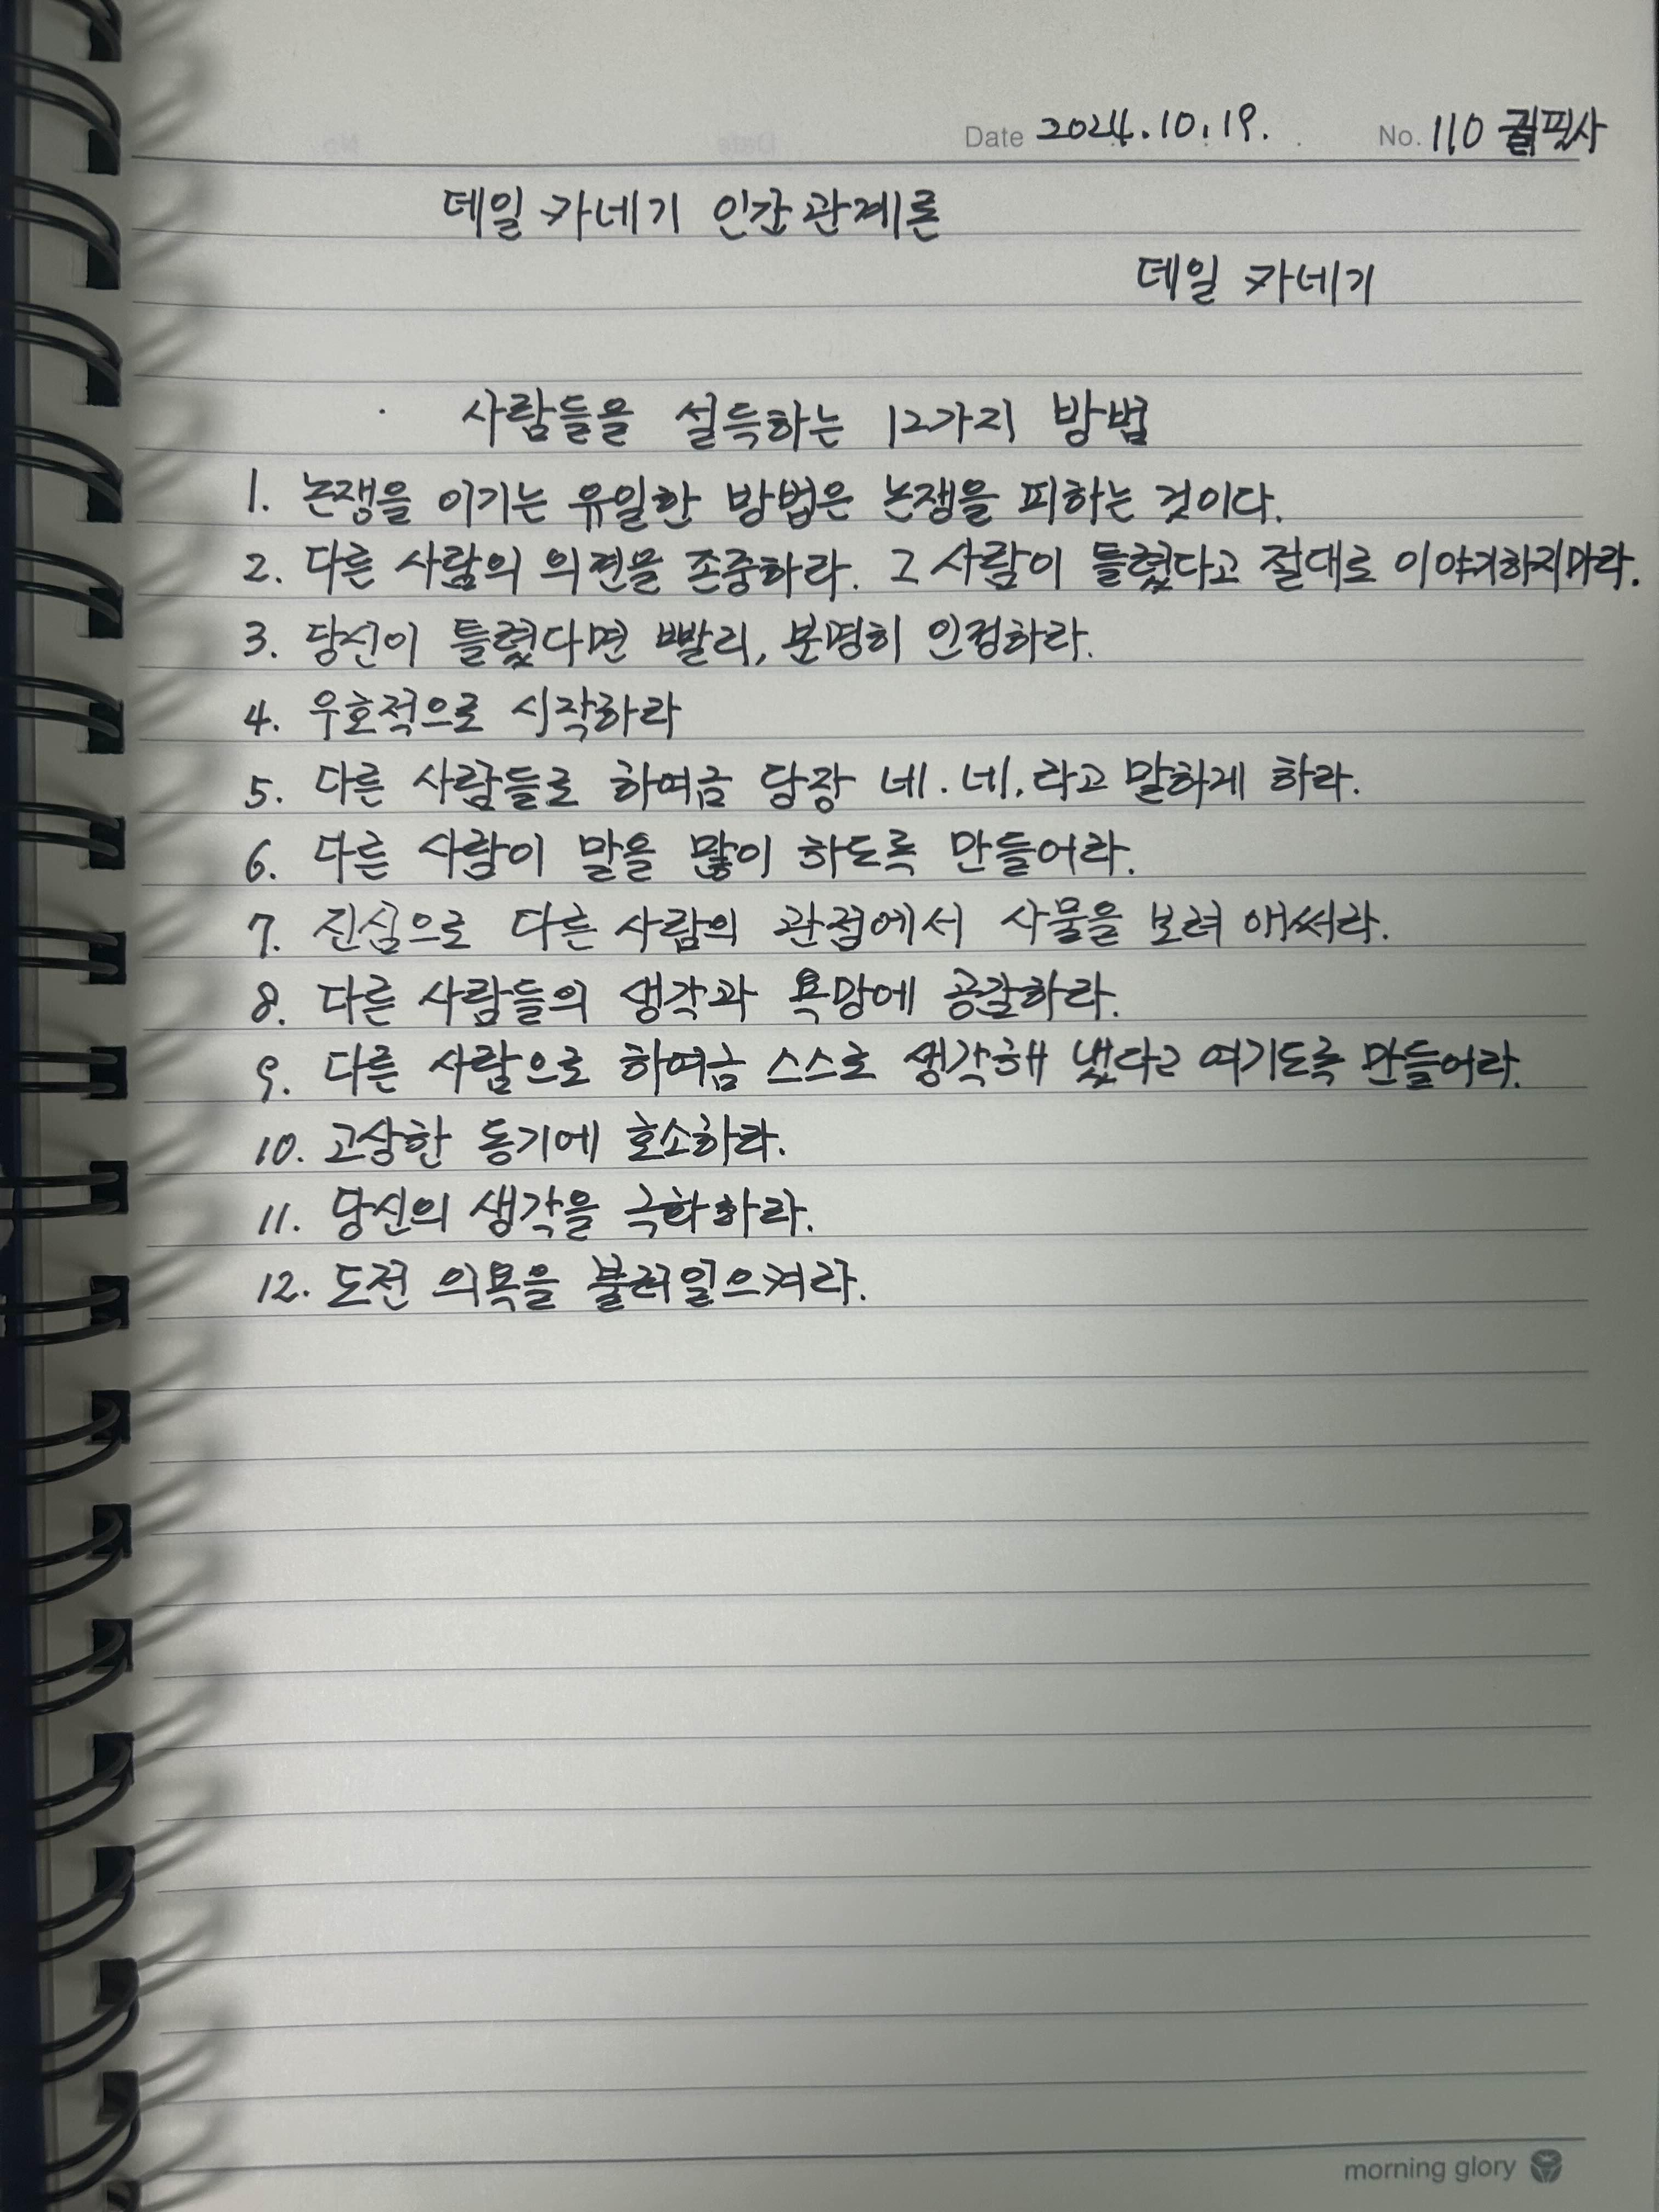 Date 2024.10.19. No. 110 필사
데일 카네기 인간관계론
데일 카네기
사람들을 설득하는 12가지 방법
1. 논쟁을 이기는 유일한 방법은 논쟁을 피하는 것이다.
2. 다른 사람의 의견을 존중하라. 그 사람이 틀렸다고 절대로 이야기하지마라.
3. 당신이 틀렸다면 빨리, 분명히 인정하라.
4. 우호적으로 시작하라
5. 다른 사람들로 하여금 당장 네. 네. 라고 말하게 하라.
6. 다른 사람이 말을 많이 하도록 만들어라.
7. 진심으로 다른 사람의 관점에서 사물을 보려 애써라.
8. 다른 사람들의 생각과 욕망에 공감하라.
9. 다른 사람으로 하여금 스스로 생각해 냈다고 여기도록 만들어라.
10. 고상한 동기에 호소하라.
11. 당신의 생각을 극화하라.
12. 도전 의욕을 불러일으켜라.
morning glory